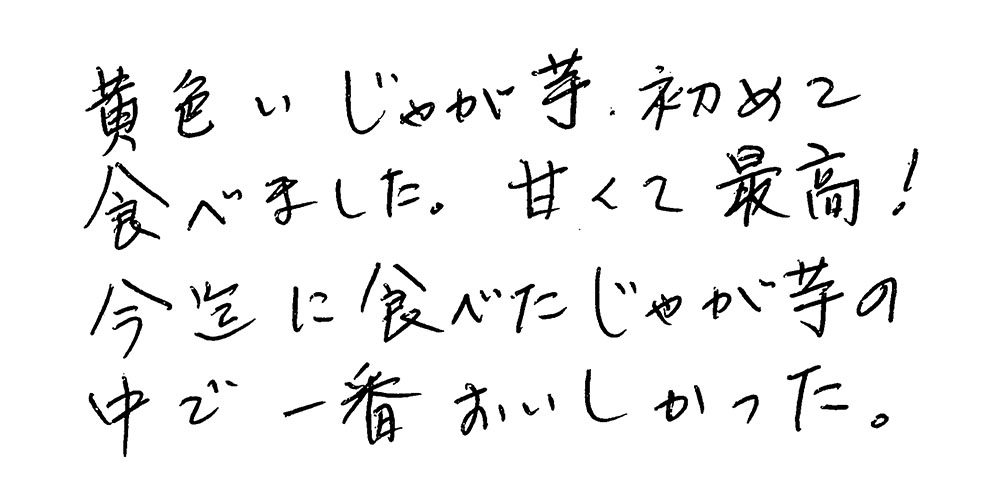 黄色いじゃが芋、初めて
食べました。甘くて最高！
今迄に食べたじゃが芋の
中で一番おいしかった。